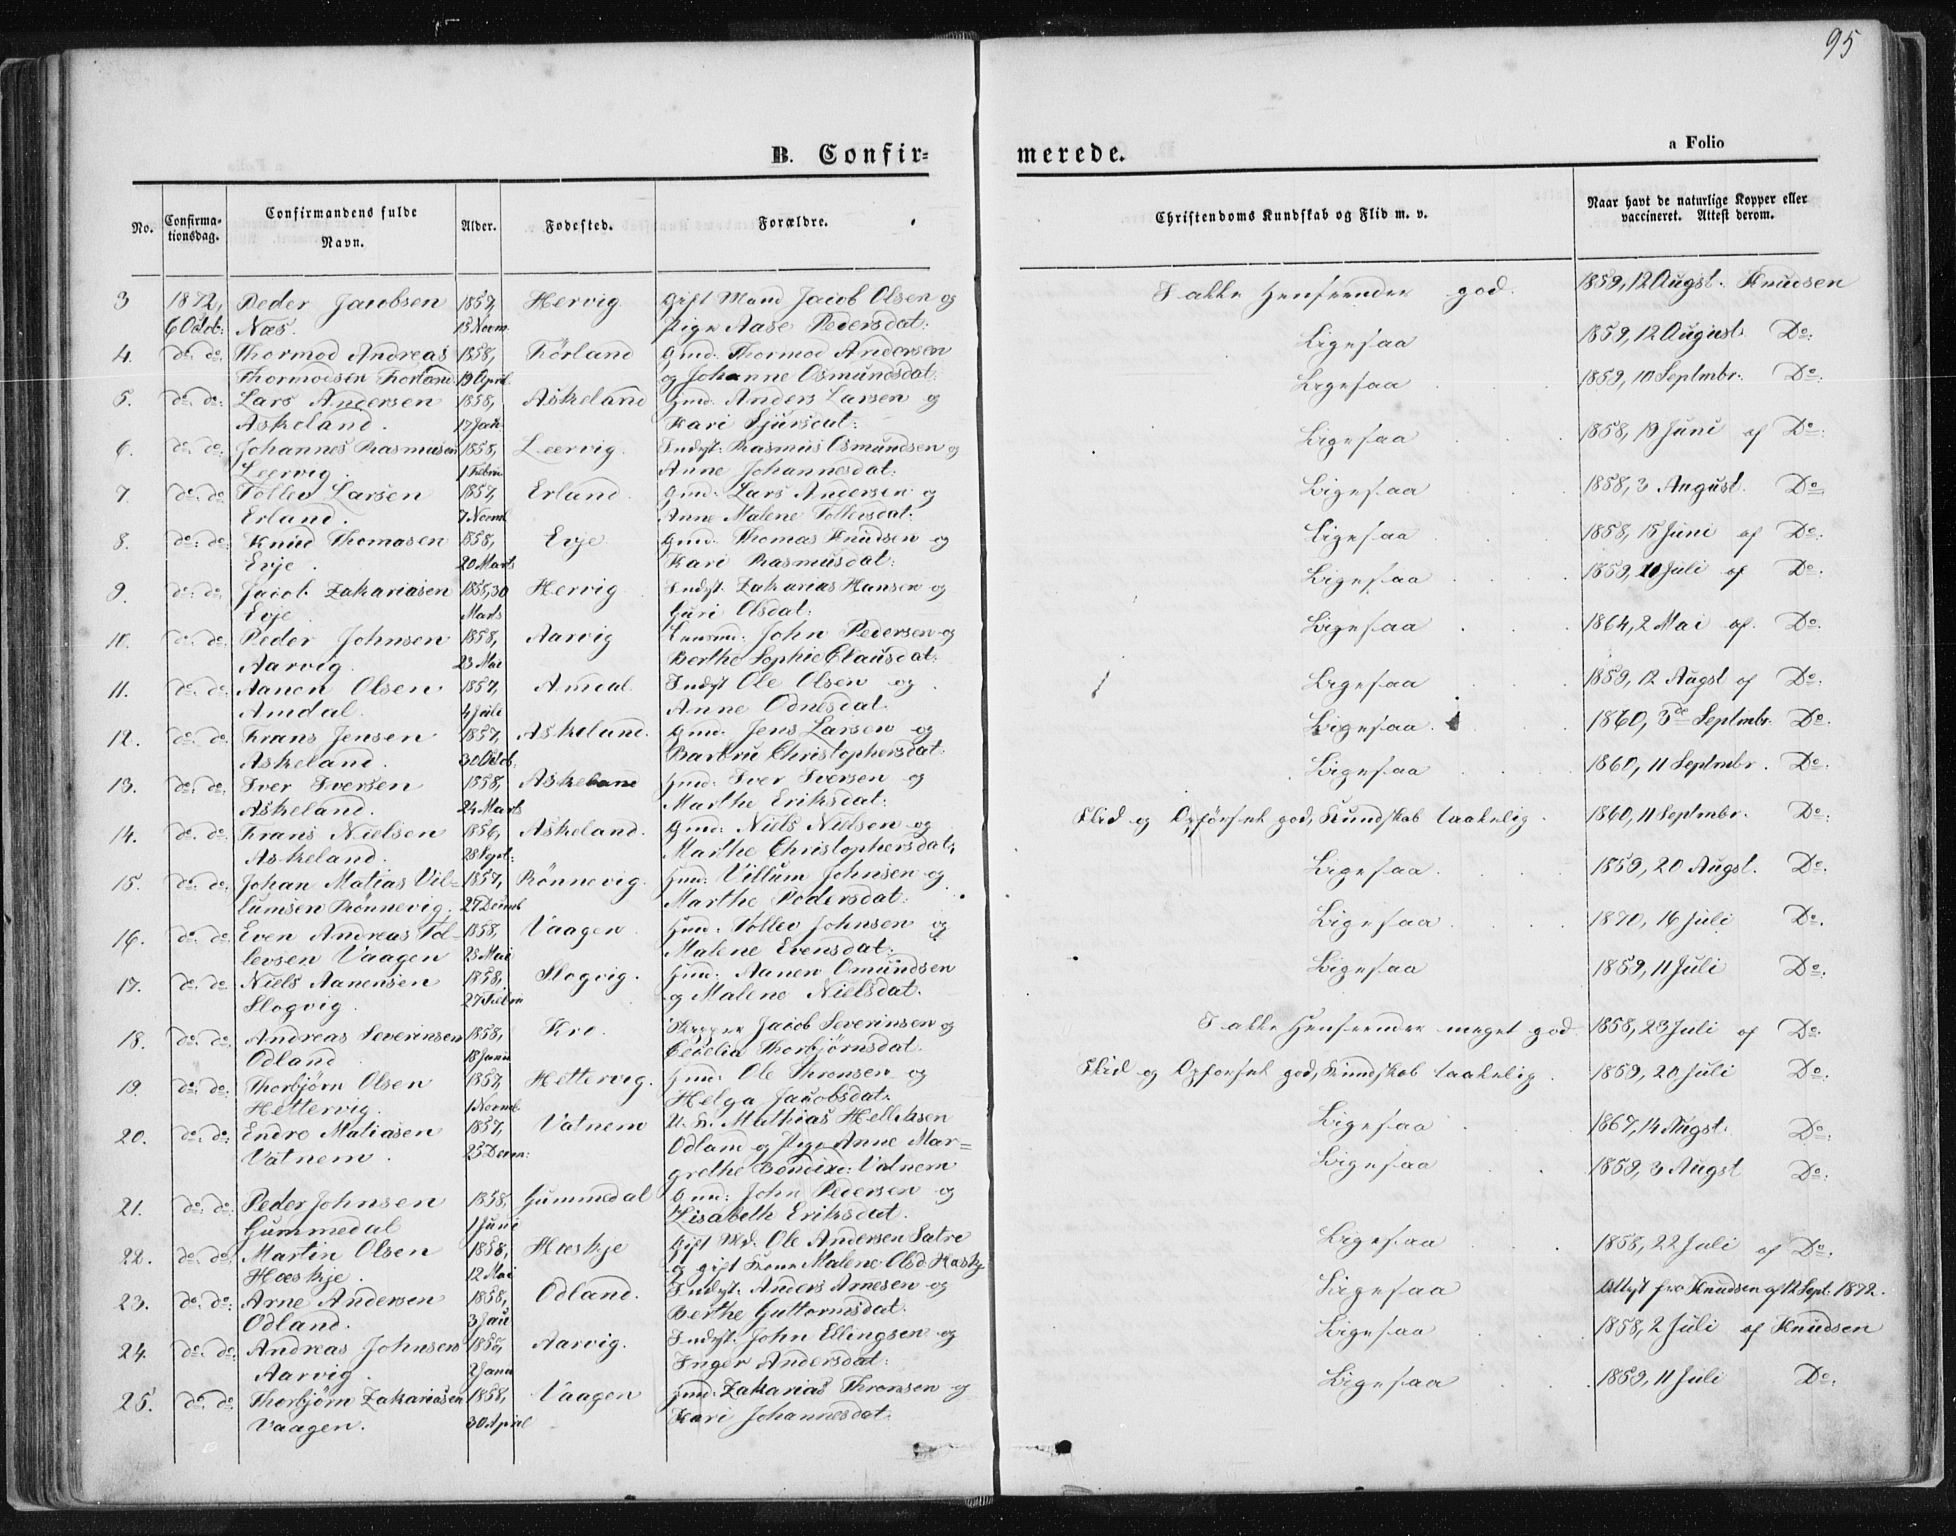 95
B. Confir=
merede.
a Folio
No.
Confirma-
tionsdag.
Confirmandens fulde
Navn.
Alder.
Fødested.
Forældre.
Christendoms Kundskab og Flid m. v.
Naar havt de naturlige Kopper eller
vaccineret. Attest derom.
3 1872, Peder Jacobsen 1857, Hervig. Gift Mand Jacob Olsen og I alle Henseender god. 1859, 12 Augst. Knudsen
6 Octob: Næs. 15 Novm. Pige Aase Pedersdat:
4. do. do. Thormod Andreas 1858, Førland Gmd. Thormod Andersen Ligesaa 1859, 12 August. Do:
Thormodsen Førland 19 April. og Johanne Osmundsdat.
5. do. do: Lars Andersen 1858, Askeland Gmd. Anders Larsen og Ligesaa 1859, 10 Septmbr. Do:
Askeland. 17 Jan. Kari Sjursdat:
6. do. do: Johannes Rasmusen 1858, Leervig. Indst: Rasmus Osmundsen og Ligesaa 1858, 19 Juni af Do:
Leervig. 1 Febru Anne Johannesdat:
7. do. do: Tollev Larsen 1857, Erland. Gmd. Lars Andersen og Ligesaa 1858, 3 August. Do:
Erland. 7 Novmb Anne Malene Tollevsdat:
8. do: do: Knud Thomasen 1858, Evje Gmd. Thomas Knudsen og Ligesaa 1858, 15 Juni af Do:
Evje. 20 Marts Kari Rasmusdat:
9. do. do. Jacob Zakariasen 1858, 30 Hervig Indst: Zakarias Hansen og Ligesaa 1859, 10 Juli af Do:
Evje. Marts Guri Olsdat:
10. do. do: Peder Johnsen 1858, Aarvig John Pedersen og Ligesaa 1864, 2 Mai af. Do.
Aarvig. 23 Mai Berthe Sophie Clausdat:
11. do. do. Aanen Olsen 1857, Amdal. Indst Ole Olsen og Ligesaa 1859, 12 Augst af Do:
Amdal. 4 Juli Anne Odnesdat.
12. do. do. Frans Jensen 1857, Askeland. Gmd: Jens Larsen og Ligesaa. 1860, 3de Septmbr. Do:
Askeland. 30 Octob. Barbru Christophersdat:
13. do: do: Iver Iversen 1858, Askeland Gmd: Iver Iversen og Ligesaa 1860, 11 Septmbr. Do:
Askeland. 24 Marts Marthe Eriksdat:
14. do. do. Frans Nielsen 1856, Askeland. Gmd: Niels Nielsen og Flid og Opførsel god, Kundskab taalelig. 1860, 11 Septmbr. Do:
Askeland. 28 Sept: Marthe Christophersdat:
15. do: do: Johan Matias Vil- 1857, Rønnevig. Gmd: Villum Johnsen og Ligesaa 1859, 20 Augst. Do:
lumsen Rønnevig. 27 Decmb Marthe Pedersdat:
16. do. do: Even Andreas Tol- 1858, Vaagen. Gmd: Tollev Johnsen og Ligesaa 1870, 16 Juli Do.
levsen Vaagen 28 Mai Malene Evensdat:
17. do. do: Niels Aanensen 1858, Slogvig. Gmd: Aanen Omundsen Ligesaa 1859, 11 Juli Do:
Slogvig. 27 Febru og Malene Nielsdat.
18. do: do: Andreas Severinsen 1858, Kro. Skipper Jacob Severinsen og I alle Henseender meget god 1858, 23 Juli af Do:
Odland. 18 Janu Cecelia Thorbjørnsdat.
19. do: do: Thorbjørn Olsen 1857, Hettervig. Gmd: Ole Thronsen og Flid og Opførsel god, Kundskab taalelig. 1859, 20 Juli Do:
Hettervig. 1 Novmb. Helga Jacobsdat:
20. do: do: Endre Matiasen 1857, Vatnem U. K. Mathias Helliksen Ligesaa 1867, 14 Augst. Do:
Vatnem. 25 Decm: Odland og Pige Anne Mar=
grethe Bendixd: Vatnem
21. do: do: Peder Johnsen 1858, Gummedal Gmd: John Pedersen og Ligesaa 1859, 3 Augst Do:
Gummedal 1 Juni Lisabeth Eriksdat.
22. do. do. Martin Olsen 1858, Hæskje Gift Md. Ole Andersen Satre Ligesaa 1858, 22 Juli af Do:
Hæskje. 12 Mai og gift Kone Malene Olsd. Hæskje
23. do: do: Arne Andersen 1858, Odland. Indst: Anders Arnesen og Ligesaa Attest fra Knudsen af 12 Sept. 1872.
Odland. 3 Jan Berthe Guttormsdat:
24. do: do: Andreas Johnsen 1858, Aarvig. Indst: John Ellingsen og Ligesaa 1858, 2 Juli af Knudsen
Aarvig. 2 Janu Inger Andersdat:
25. do: do: Thorbjørn Zakariasen 1858, Vaagen Gmd: Zakarias Thronsen og Ligesaa 1859, 11 Juli Do:
Vaagen. 30 April Kari Johannesdat: